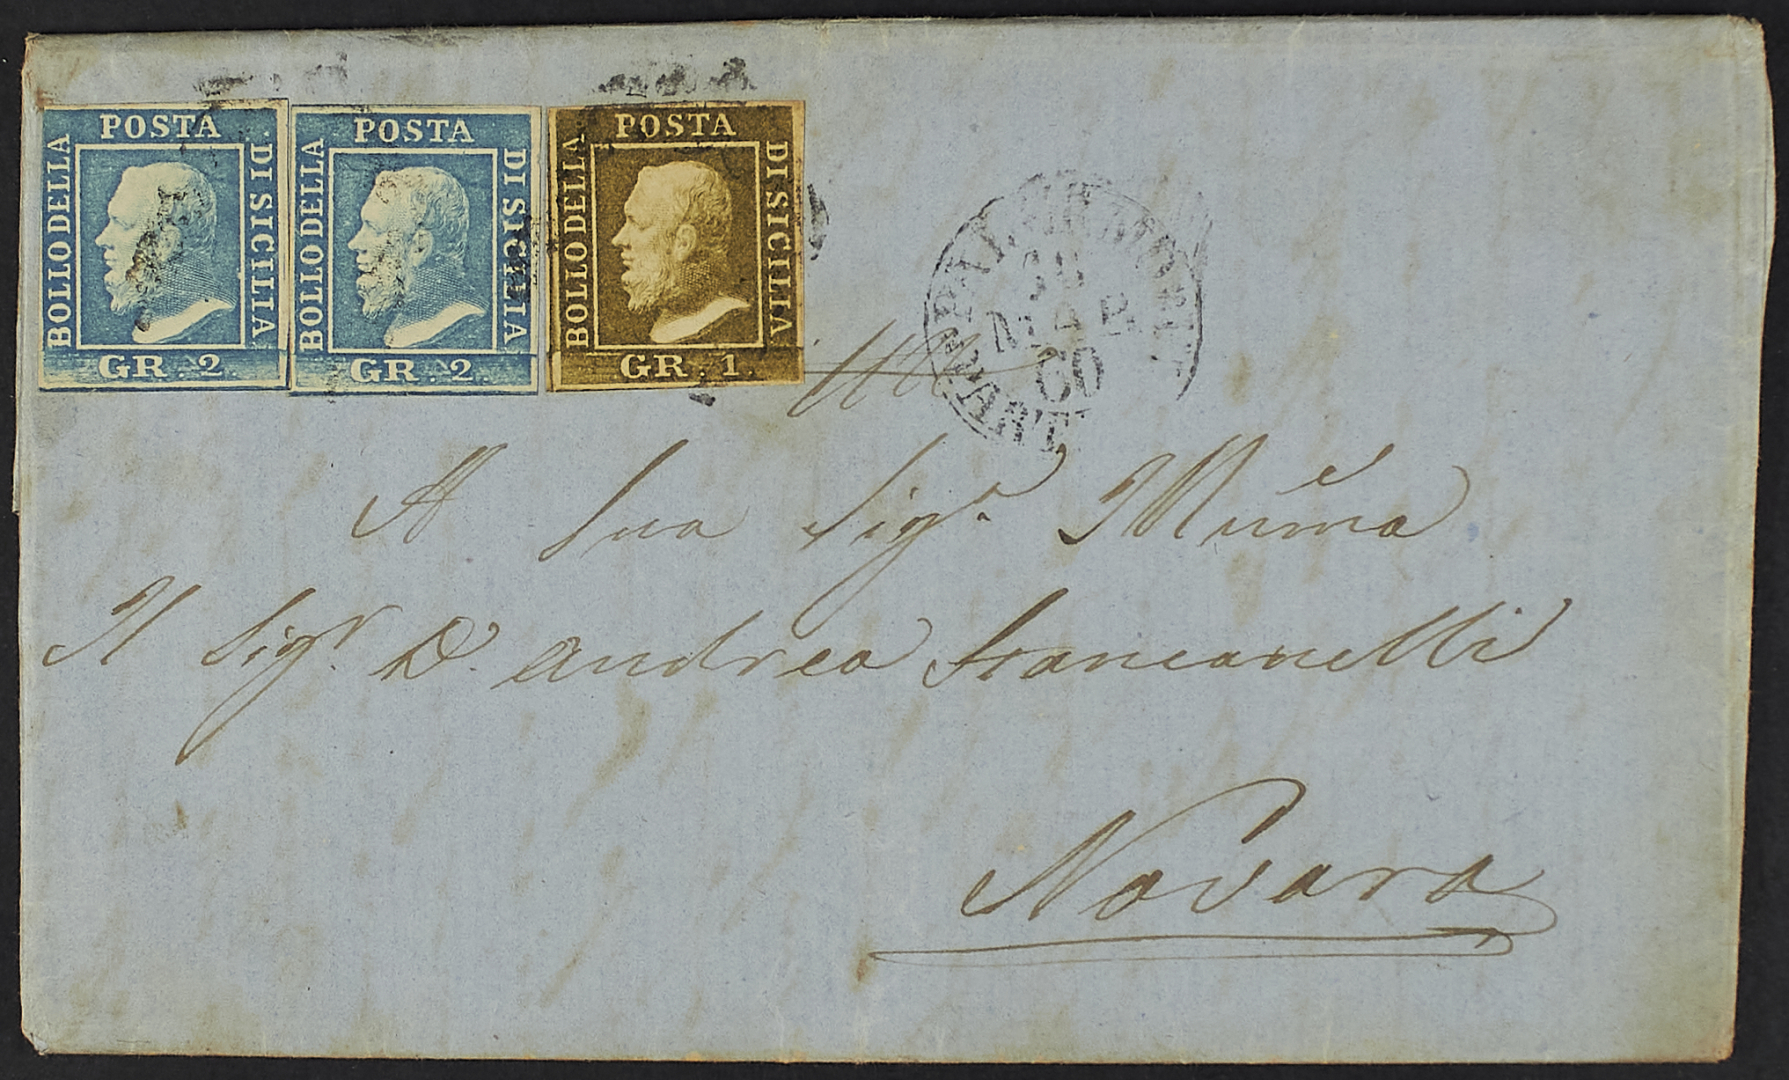 POSTA
BOLLO DELLA
DI SICILIA
GR. 2.
POSTA
BOLLO DELLA
DI SICILIA
GR. 2.
POSTA
BOLLO DELLA
DI SICILIA
GR. 1.
A Sua Sig.a
Il Sigr. D. Andrea Francanelli
Novara